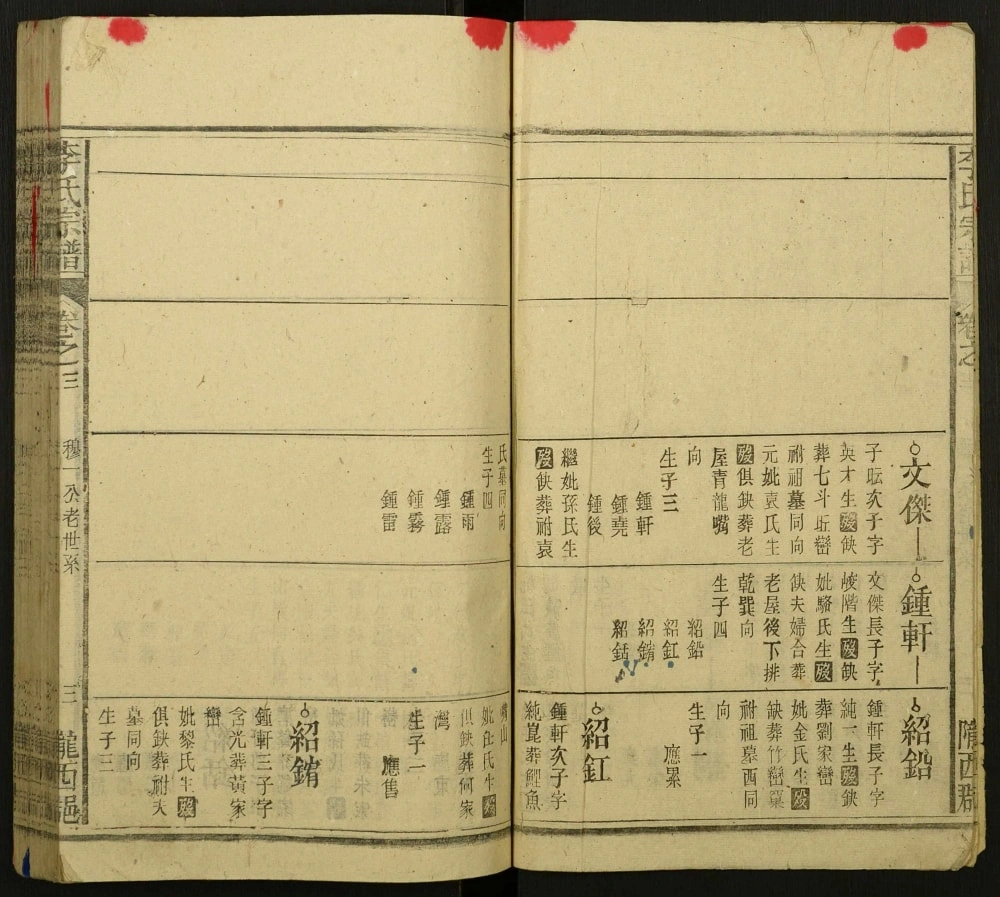 李氏宗譜
卷之三
隴西郡
文傑
子䀕次子字
英才生歿缺
葬七斗坵巒
祔祖墓同向
元妣袁氏生
歿俱缺葬老
屋青龍嘴
向
生子三
鍾軒
鍾堯
鍾後
繼妣孫氏生
歿缺葬祔袁
氏墓同向
生子四
鍾雨
鍾露
鍾霧
鍾雷
鍾軒
文傑長子字
峻階生歿缺
妣駱氏生歿
缺夫婦合葬
老屋後下排
乾巽向
生子四
紹鉛
紹釭
紹錥
紹銛
紹鉛
鍾軒長子字
純一生歿缺
葬劉家巒
妣金氏生歿
缺葬竹巒巽
向
祔祖墓酉同
生子一
應累
紹釭
鍾軒次子字
純崑葬鯉魚
嘴山
妣 氏生歿
俱缺葬何家
灣
生子一
應售
鍾軒三子字
含光葬黃家
巒
妣黎氏生歿
俱缺葬祔夫
墓同向
生子三
李氏宗譜
卷之三
穆一公老世系
三
隴西郡